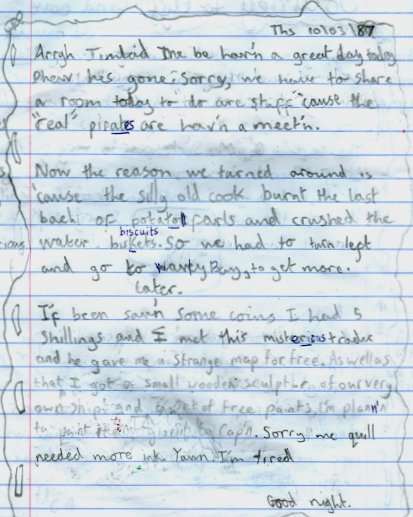 Ths 10/03/87
Arrgh Timbaid Ime be hav'n a great day today
Phew he's gone. Sorry, we have to share
a room today to do are stuff 'cause the
"real" pirates are hav'n a meet'n.
Now the reason we turned around is
'cause the silly old cook burnt the last
bach of potatoe farls and crushed the
biscuits
water biskets. So we had to turn left
and go to Bay, to get more.
Later.
If been sav'n some coins I had 5
Shillings and I met this misterious trader
and he gave me a strange map for free. As well as
that I got a small wooden sculpture of our very
own ship and a set of free paints, I'm plann'n
to paint it Cap'n. Sorry me quill
needed more ink. Yawn. I'm tired
Good night.